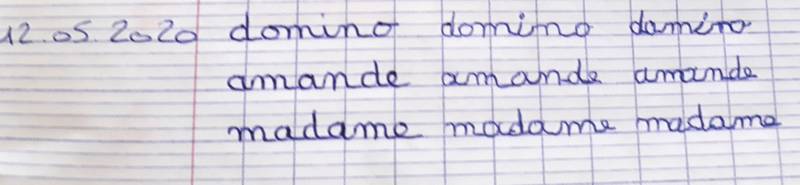 12.05.2020 domino domino domino
amande amande amande
madame madame madame